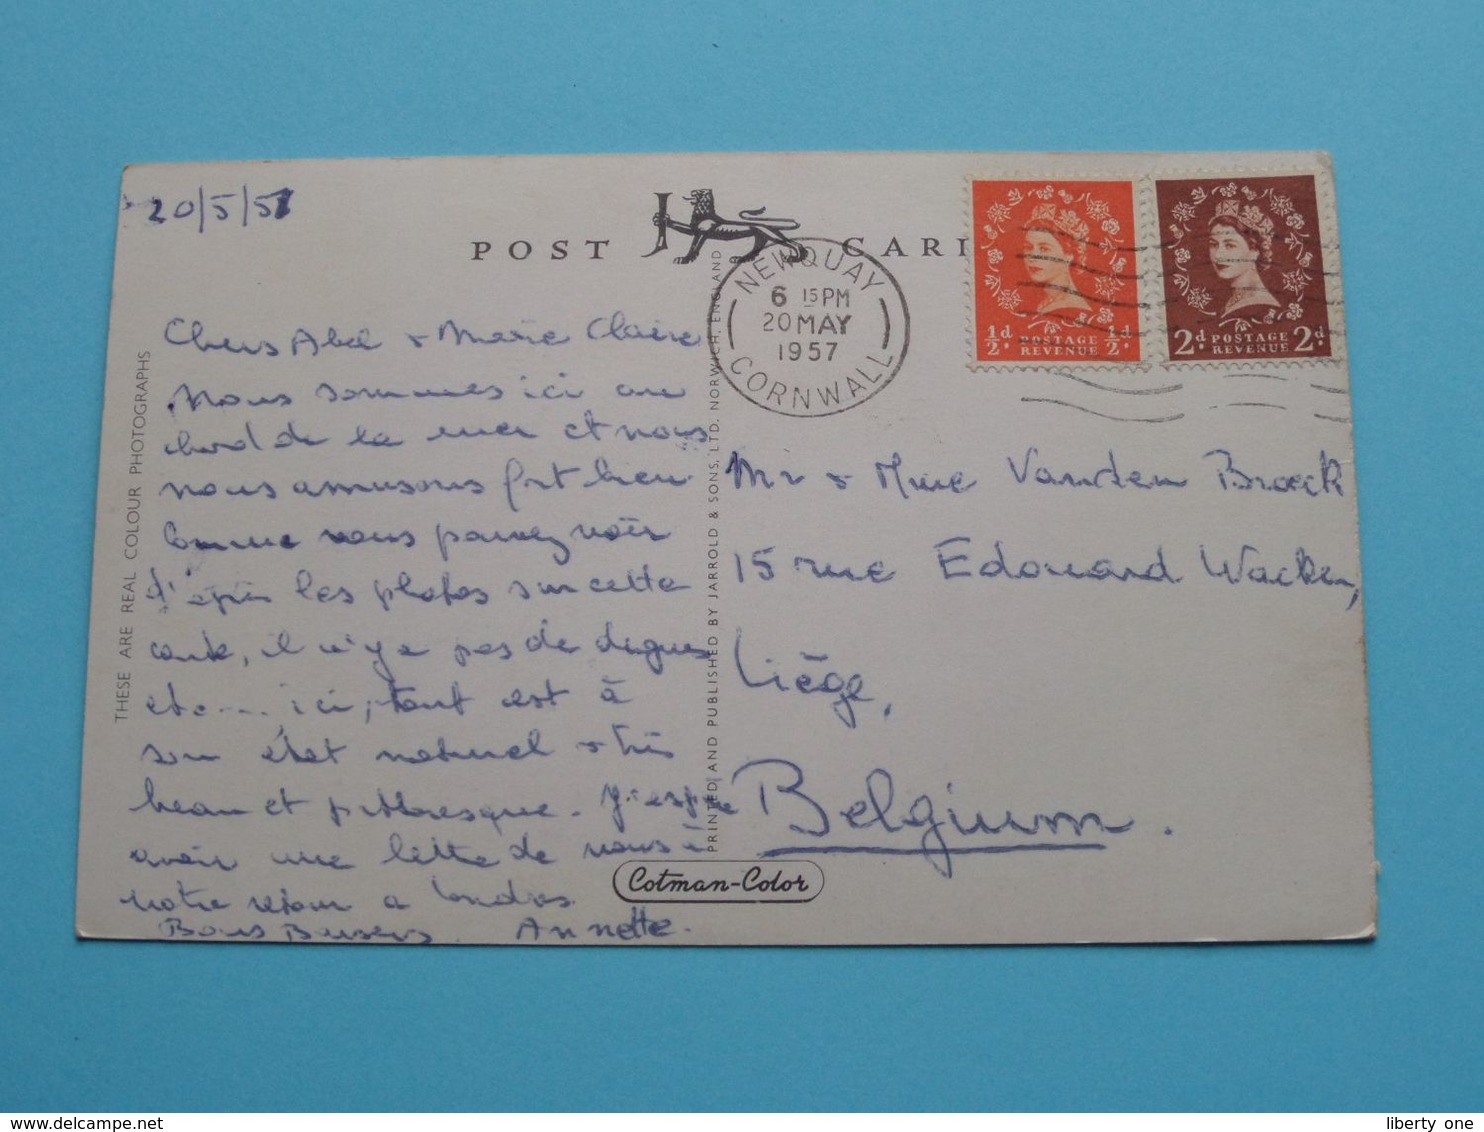 20/5/57
POST CARD
NEWQUAY
6 15 PM
20 MAY
1957
CORNWALL
½d. ½d.
POSTAGE
REVENUE
2d. 2d.
POSTAGE
REVENUE
THESE ARE REAL COLOUR PHOTOGRAPHS
Chers Abel & Marie Claire
Nous sommes ici au
bord de la mer et nous
nous amusons fort bien
Comme vous pouvez voir
d'après les photos sur cette
carte, il n'y a pas de digues
etc.... ici, tout est à
son état naturel & très
beau et pittoresque. J'espère
avoir une lettre de vous à
notre retour a Londres.
Bons Baisers. Annette.
PRINTED AND PUBLISHED BY JARROLD & SONS, LTD. NORWICH, ENGLAND
Mr & Mme Vanden Broeck
15 rue Edouard Wacken,
Liège,
Belgium.
Cotman-Color
liberty one